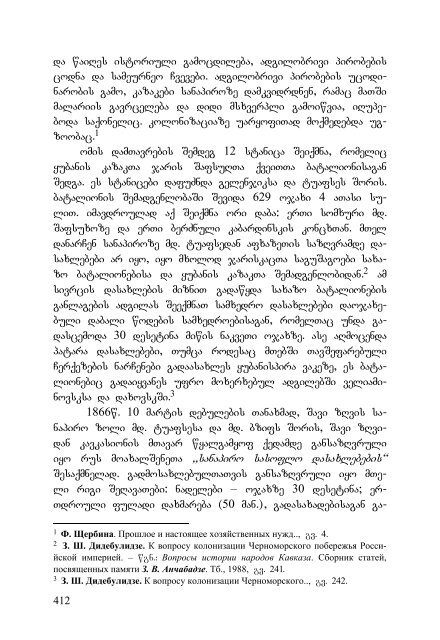 და წაიღეს ისტორიული გამოცდილება, ადგილობრივი პირობების
ცოდნა და სამეურნეო ჩვევები. ადგილობრივი პირობების უცოდი-
ნარობის გამო, კაზაკები სანაპიროზე დამკვიდრდნენ, რამაც მათში
მალარიის გავრცელება და დიდი მსხვერპლი გამოიწვია, იღუპე-
ბოდა საქონელიც. კოლონიზაციაზე უარყოფითად მოქმედებდა უგ-
ზოობაც.1
ომის დამთავრების შემდეგ 12 სტანიცა შეიქმნა, რომელიც
ყუბანის კაზაკთა ჯარის შაფსუღთა ქვეითთა ბატალიონისაგან
შედგა. ეს სტანიცები დაფუძნდა გელენჯიკსა და ტუაფსეს შორის.
ბატალიონის შემადგენლობაში შევიდა 629 ოჯახი 4 ათასი სუ-
ლით. იმავდროულად აქ შეიქმნა ორი დაბა: ერთი სომხური მდ.
შაფსუხოზე და ერთი ბერძნული კაბარდინსკის კონცხთან. მთელ
დანარჩენ სანაპიროზე მდ. ტუაფსედან აფხაზეთის საზღვრამდე და-
სახლებები არ იყო, იყო მხოლოდ ჯარისკაცთა საგუშაგოები სახა-
ზო ბატალიონებისა და ყუბანის კაზაკთა შემადგენლობიდან.2 ამ
სივრცის დასახლების მიზნით გადაწყდა სახაზო ბატალიონების
განლაგების ადგილას შეექმნათ სამხედრო დასახლებები დაოჯახე-
ბული დაბალი წოდების სამხედროებისაგან, რომელთაც უნდა გა-
დასცემოდა 30 დესეტინა მიწის ნაკვეთი ოჯახზე. ასე აღმოცენდა
პატარა დასახლებები, თუმცა როდესაც მთებში თავშეფარებული
ჩერქეზების ნარჩენები გადაასახლეს ყუბანისპირა ვაკეზე, ეს ბატა-
ლიონებიც გადაიყვანეს უფრო მოხერხებულ ადგილებში ველიამი-
ნოვსკსა და დახოვსკში.3
1866წ. 10 მარტის დებულების თანახმად, შავი ზღვის სა-
ნაპირო ზოლი მდ. ტუაფსესა და მდ. ბზიფს შორის, შავი ზღვი-
დან კავკასიონის მთავარ წყალგამყოფ ქედამდე განსაზღვრული
იყო რუს მოახალშენეთა „სანაპირო სასოფლო დასახლებების“
შესაქმნელად. გადმოსახლებულთათვის განსაზღვრული იყო მთე-
ლი რიგი შეღავათები: ნადელები – ოჯახზე 30 დესეტინა; ერ-
თდროული ფულადი დახმარება (50 მან.), გადასახადებისაგან გა-
1 Ф. Щербина. Прошлое и настоящее хозяйственных нужд.., გვ. 4.
2 З. Ш. Дидебулидзе. К вопросу колонизации Черноморского побережья Росси-
йской империей. – წგნ.: Вопросы истории народов Кавказа. Сборник статей,
посвященных памяти З. В. Анчабадзе. Тб., 1988, გვ. 241.
3 З. Ш. Дидебулидзе. К вопросу колонизации Черноморского.., გვ. 242.
412